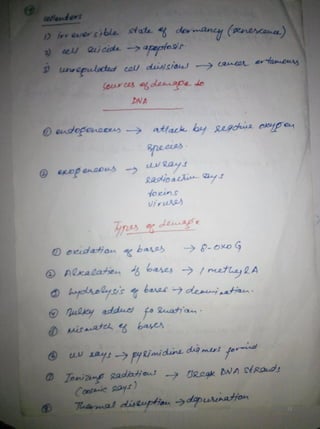 1) irreversible state of dormancy (senescence)
2) cell suicide → apoptosis
3) unregulated cell division → cancer or tumours
Sources of demage to
DNA
① endogoneous → attack by reactive oxygen
species.
② exogeneous → uv rays
radioactive rays
toxins
viruses
Types of demage
① oxidation of bases → 8-oxo G
② Alkalation of bases → 1 methyl A
③ hydrolysis of bases → deamination.
④ Bulky adduct formation.
⑤ Mismatch of bases
⑥ uv rays → pyrimidine dimers formed
⑦ Ionizing radiations → Break DNA strands
(cosmic rays)
⑧ Thermal disruption → depurination